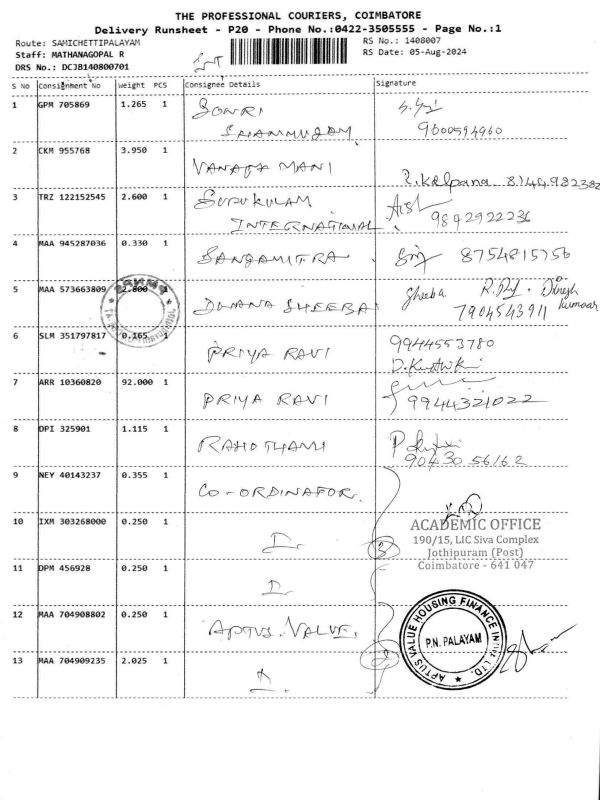 THE PROFESSIONAL COURIERS, COIMBATORE
Delivery Runsheet - P20 - Phone No.:0422-3505555 - Page No.:1
Route: SAMICHETTIPALAYAM
RS No.: 1408007
Staff: MATHANAGOPAL R
RS Date: 05-Aug-2024
DRS No.: DCJB140800701
S No Consignment No Weight PCS Consignee Details Signature
1 GPM 705869 1.265 1 GOWRI
SHANMUGAM 9600594960
2 CKM 955768 3.950 1 VANATHA MANI
R.Kalpana 8144982382
3 TRZ 122152545 2.600 1 GURUKULAM
INTERNATIONAL. 9842922236
4 MAA 945287036 0.330 1 SANGAMITRA 8754815756
5 MAA 573663809 2.800 1 DHANA SHEEBA Sheeba Dinesh Kumaar
7904543911
6 SLM 351797817 0.165 1 PRIYA RAVI 9944553780
7 ARR 10360820 92.000 1 PRIYA RAVI 9944321022
8 DPI 325901 1.115 1
90430 56162
9 NEY 40143237 0.355 1 CO-ORDINATOR.
10 IXM 303268000 0.250 1
ACADEMIC OFFICE
190/15, LIC Siva Complex
Jothipuram (Post)
Coimbatore - 641 047
3
11 DPM 456928 0.250 1
12 MAA 704908802 0.250 1 APTUS VALUE.
APTUS VALUE HOUSING FINANCE INDIA LTD.
P.N. PALAYAM
2
13 MAA 704909235 2.025 1